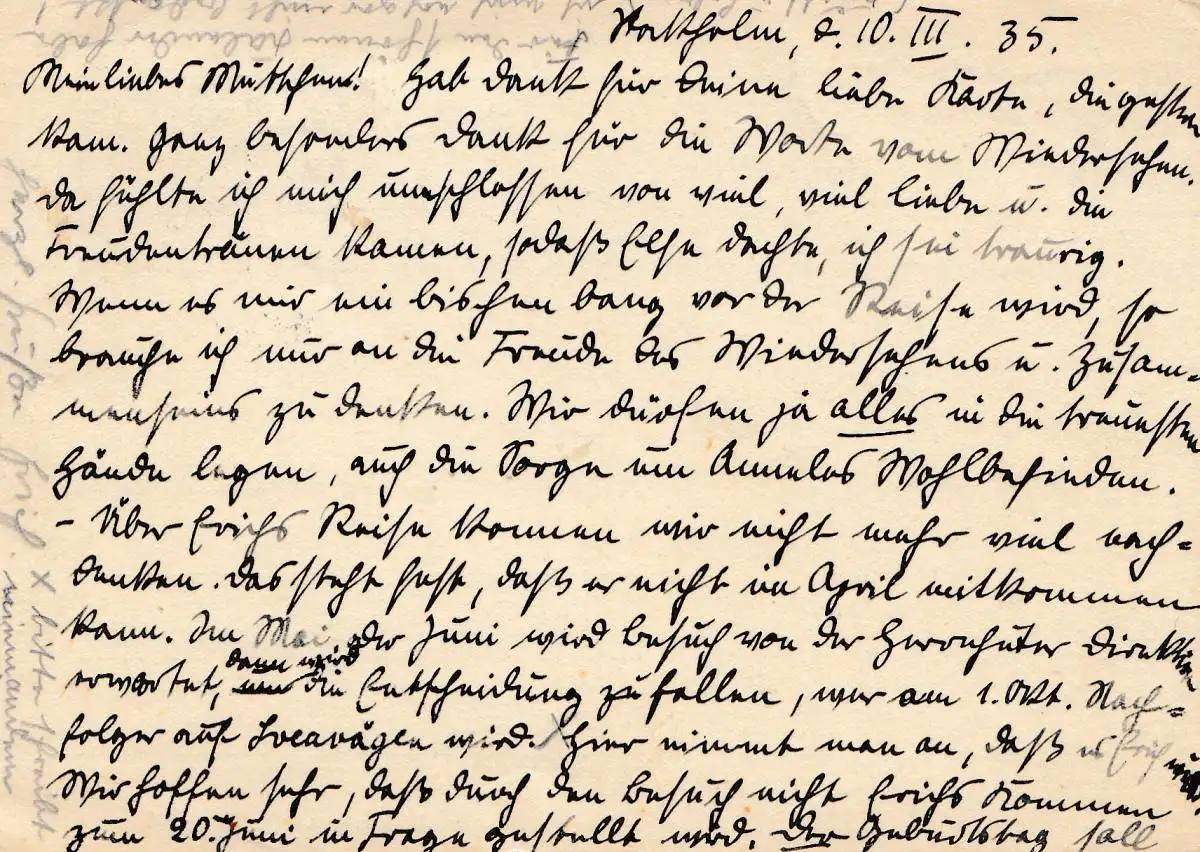 Stockholm, d. 10. III. 35.
Mein liebes Muttchen! Hab Dank für Deine liebe Karte, die gestern
kam. Ganz besonders Dank für die Worte vom Wiedersehen.
Da fühlte ich mich umschlossen von viel, viel Liebe u. die
Freudentränen kamen, sodaß Else dachte, ich sei traurig.
Wenn es mir ein bischen bang vor der Reise wird, so
brauche ich nur an die Freude des Wiedersehens u. Zusam-
menseins zu denken. Wir dürfen ja alles in die treuesten
Hände legen, auch die Sorge um Anneles Wohlbefinden.
- Über Erichs Reise können wir nicht mehr viel nach-
denken. Das steht fest, daß er nicht im April mitkommen
kann. Im Mai oder Juni wird Besuch von der Herrnhuter Direktion
erwartet, dann wird die Entscheidung zu fallen, wer am 1. Okt. Nach-
folger auf Sveavägen wird. x Hier nimmt man an, daß es Erich wird.
Wir hoffen sehr, daß durch den Besuch nicht Erichs Kommen
zum 20. Juni in Frage gestellt wird. Der Geburtstag soll
Herzl. Grüße Erich. x bitte